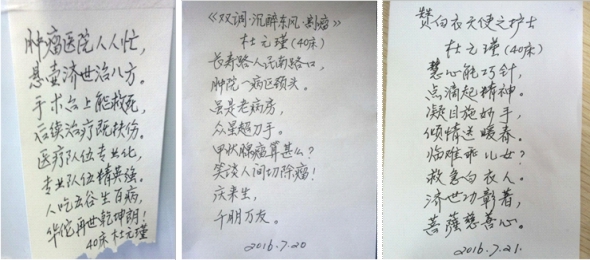 肿瘤医院人人忙，
悬壶济世治八方。
手术台上能救死，
后续治疗既扶伤。
医疗队伍专业化，
专业队伍精英强。
人吃五谷生百病，
华佗再世乾坤朗！
40床 杜元瑾
《双调·沉醉东风·割瘤》
杜元瑾(40床)
长寿路人民南路口，
肿院一病区领头。
虽是老病房，
众星超刀手。
甲状腺癌算甚么？
笑谈人间切除瘤！
庆来生，
千朋万友。
2016.7.20
赞白衣天使之护士
杜元瑾(40床)
慧心能巧针，
点滴起精神。
凝目施妙手，
倾情送暖春。
临难乖儿女？
救急白衣人。
济世功彰著，
菩萨慈善心。
2016.7.21.